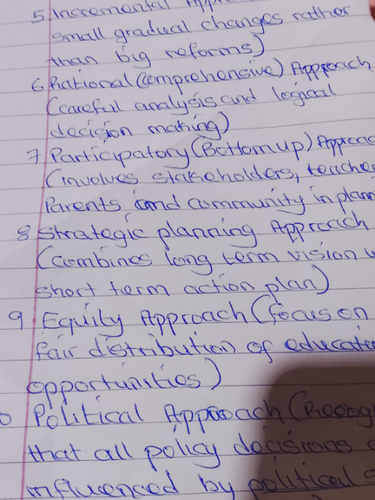 5 Incremental
small gradual changes rather
than big reforms)
6 Rational (Comprehensive) Approach
(careful analysis and logical
decision making)
7 Participatory (Bottom up)
(involves stakeholders,
Parents and community in
8 Strategic planning Approach
(combines long term vision
short term action plan)
9 Equity Approach (focus on
fair distribution of
opportunities)
Political Approach
that all policy decisions
influenced by political